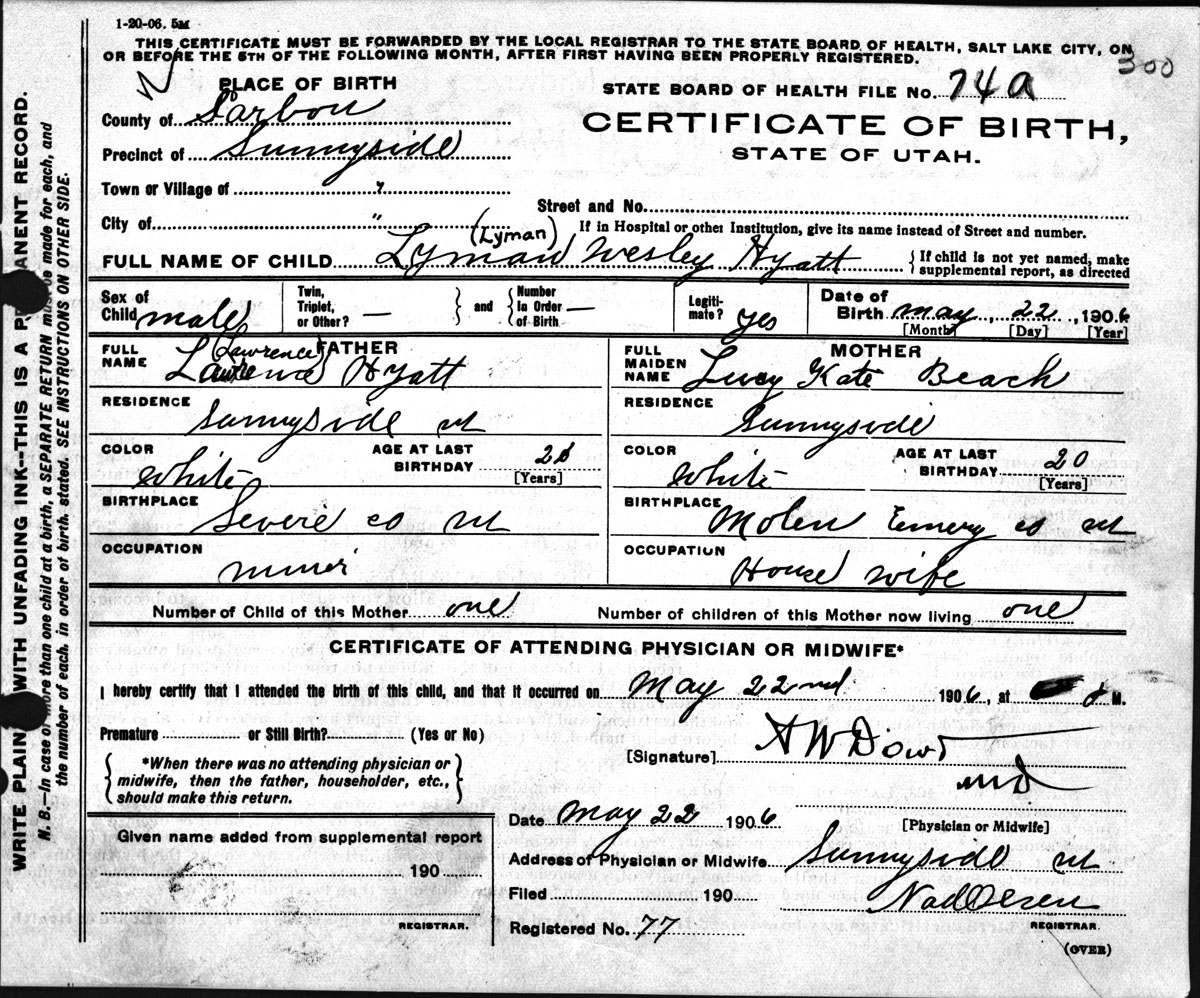 1-20-06. 5M
THIS CERTIFICATE MUST BE FORWARDED BY THE LOCAL REGISTRAR TO THE STATE BOARD OF HEALTH, SALT LAKE CITY, ON
OR BEFORE THE 5TH OF THE FOLLOWING MONTH, AFTER FIRST HAVING BEEN PROPERLY REGISTERED.
300
PLACE OF BIRTH
STATE BOARD OF HEALTH FILE No. 74a
County of Carbon
CERTIFICATE OF BIRTH,
Precinct of Sunnyside
STATE OF UTAH.
Town or Village of "
Street and No.
City of "
If in Hospital or other Institution, give its name instead of Street and number.
(Lyman)
FULL NAME OF CHILD Lyman Wesley Hyatt
{If child is not yet named, make
supplemental report, as directed
Sex of Child male
Twin, Triplet, or Other? —
and
Number In Order of Birth —
Legiti-mate? yes
Date of Birth may, 22, 1906
[Month] [Day] [Year]
FATHER
FULL NAME (Lawrence) Hyatt
RESIDENCE Sunnyside ut
COLOR White
AGE AT LAST BIRTHDAY
[Years]
BIRTHPLACE Severe co ut
OCCUPATION miner
MOTHER
FULL MAIDEN NAME Lucy Kate Beach
RESIDENCE Sunnyside
COLOR White
AGE AT LAST BIRTHDAY 20
[Years]
BIRTHPLACE Molen Emery co ut
OCCUPATION House wife
Number of Child of this Mother one
Number of children of this Mother now living one
CERTIFICATE OF ATTENDING PHYSICIAN OR MIDWIFE*
I hereby certify that I attended the birth of this child, and that it occurred on May 22nd 1906, at M.
Premature or Still Birth? (Yes or No)
[Signature] A W Dowd
md
*When there was no attending physician or
midwife, then the father, householder, etc.,
should make this return.
Date May 22 1906
[Physician or Midwife]
Given name added from supplemental report
190
REGISTRAR.
Address of Physician or Midwife Sunnyside ut
Filed 190
Registered No. 77
REGISTRAR.
(OVER)
WRITE PLAIN WITH UNFADING INK--THIS IS A PERMANENT RECORD.
N. B.—In case of more than one child at a birth, a SEPARATE RETURN must be made for each, and
the number of each, in order of birth, stated. SEE INSTRUCTIONS ON OTHER SIDE.